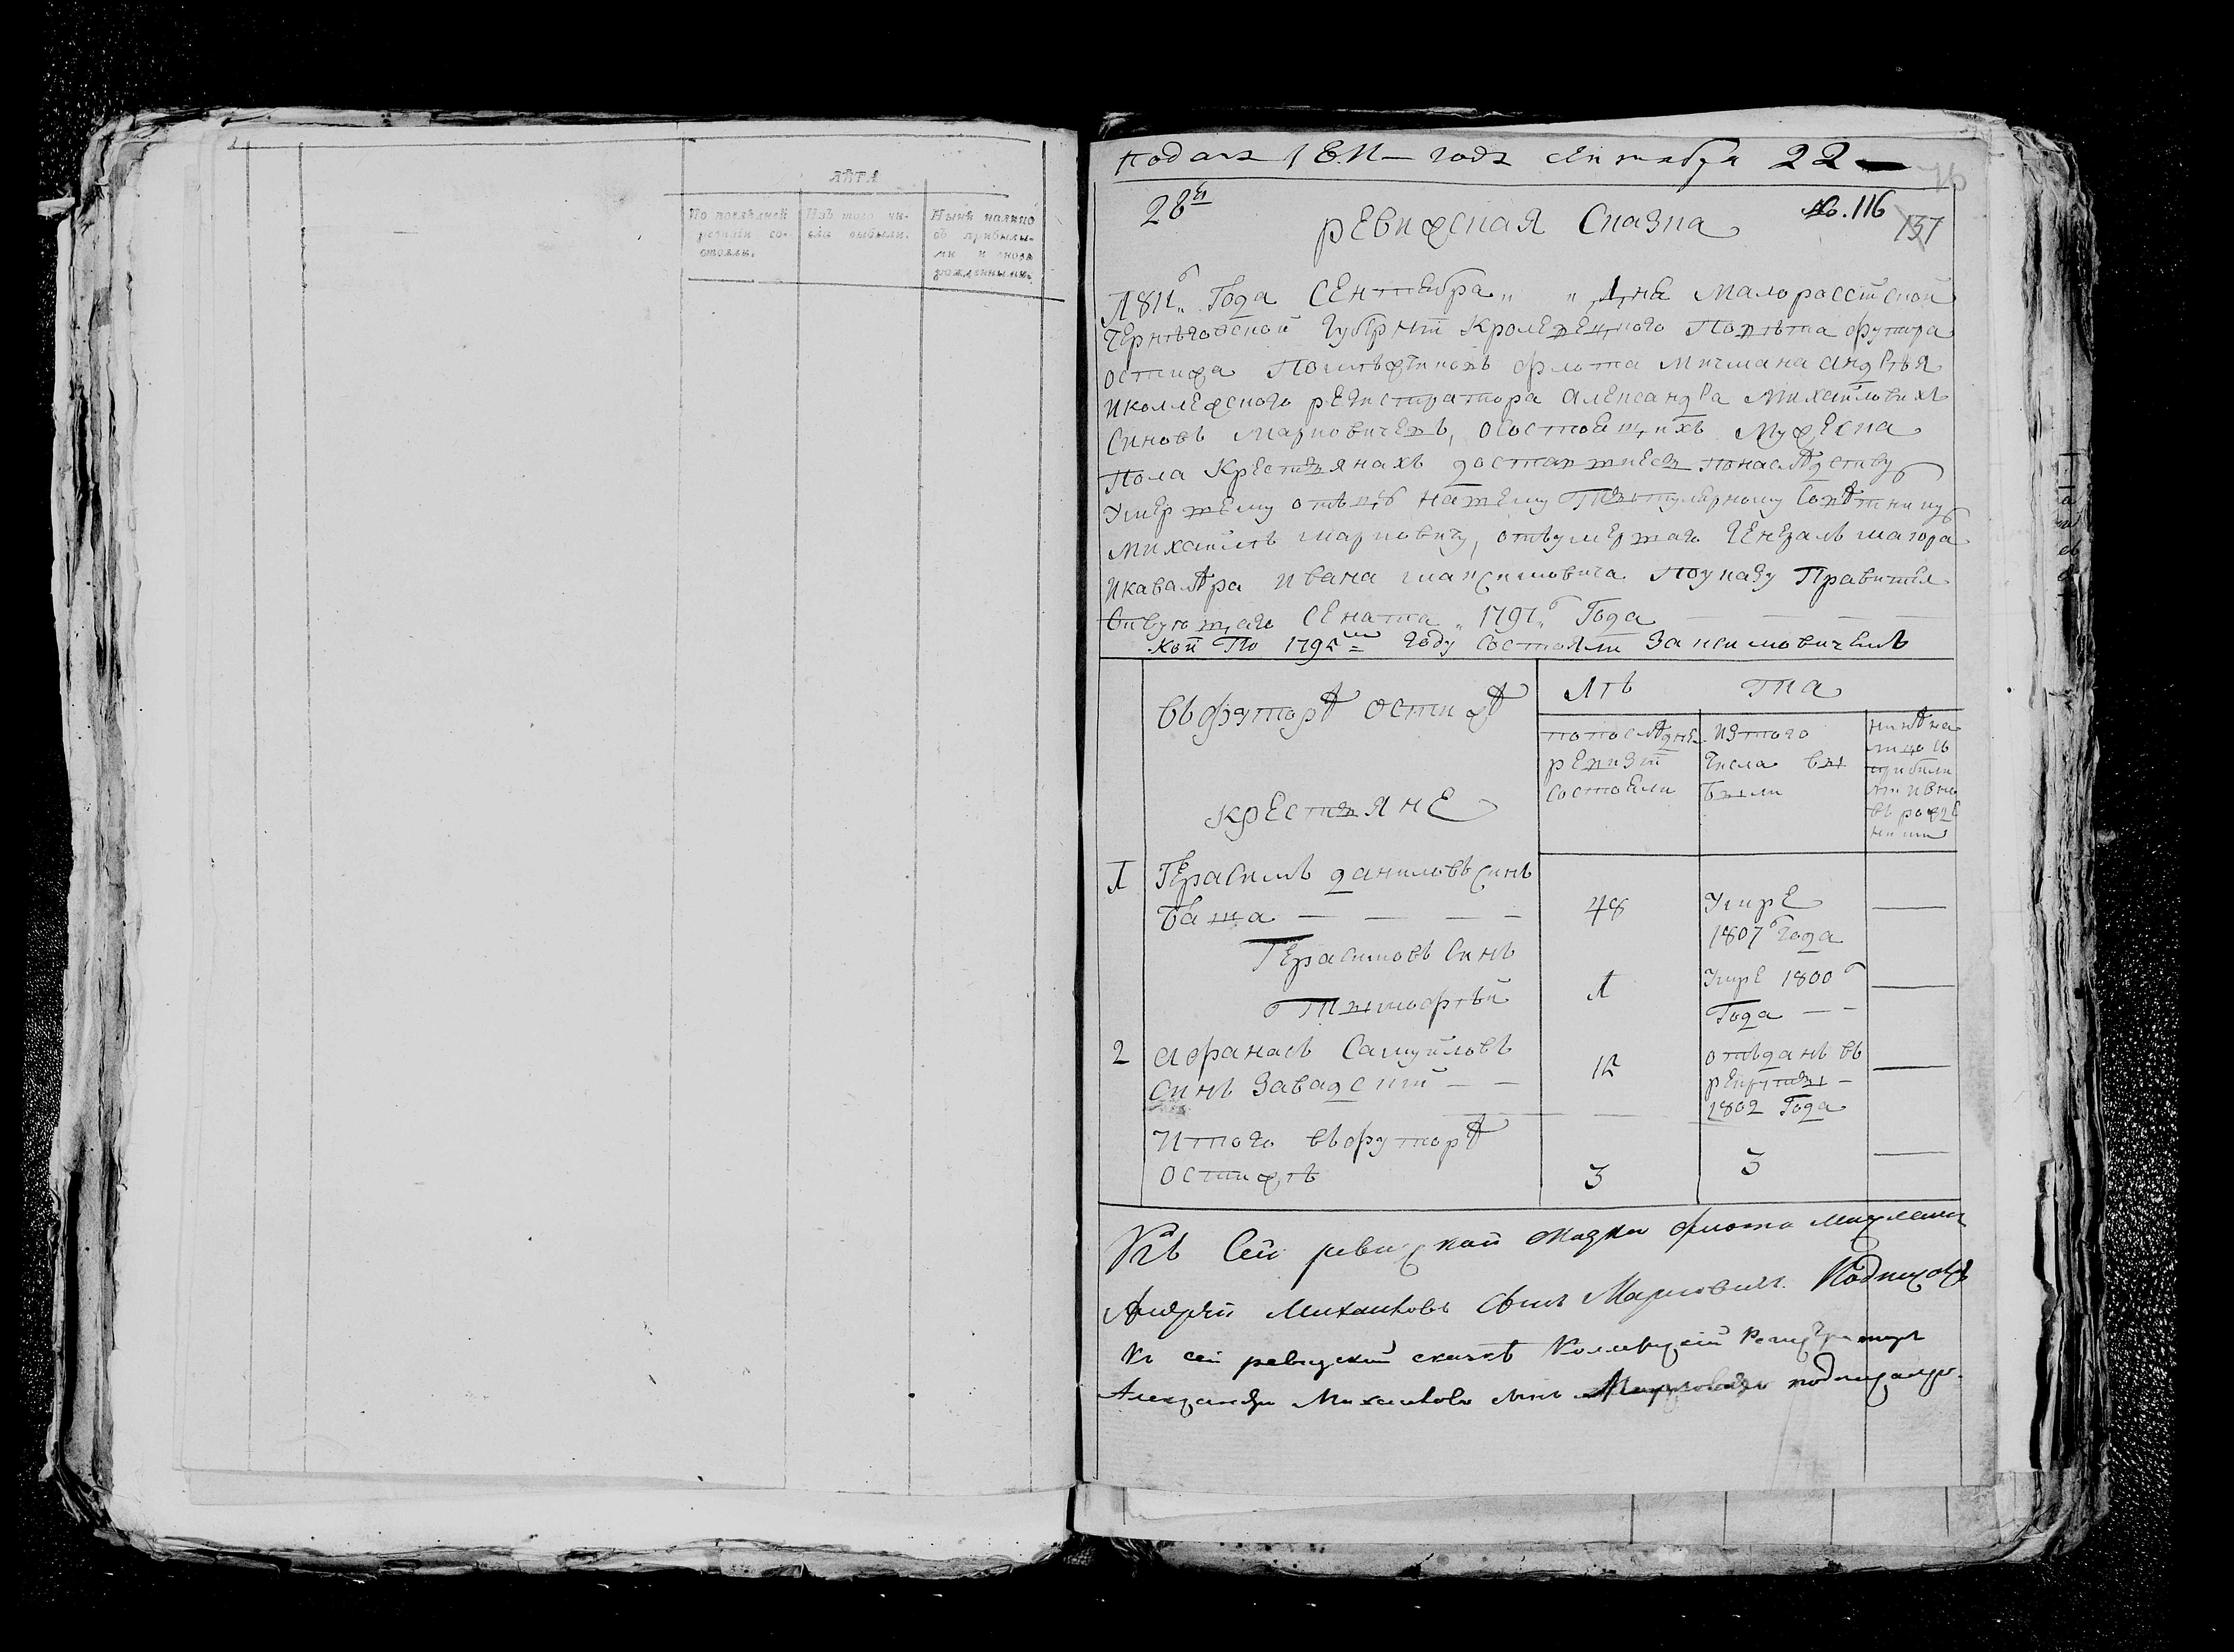 ЛѢТА
По послѣдней ревизіи состояли.
Изъ того числа выбыли.
Нынѣ налицо съ прибылыми и вновь рожденными.
подана 1811 года сентября 22
28й
№. 116
ревижская Сказка
137
1811го Года Сентебра „ „ дня Малороссийской
Черныговской Губерніи Кролевецкого Повѣта футора
остижа Помѣжиковъ флота Мичмана андрѣя
иколлежского регистратора александра михайловихъ
Синовъ марковичевъ, осостоещихъ мужеска
Пола Крестьянахъ доставшиесь понаслѣдству
Умершему отьцу нашему Тытулярному Совѣтнику
михайлѣ марковичу, отьумершаго Генералъ маиора
икавалѣра ивана максимовича Поуказу Правител
Ствующаго Сената „1791„го Года
Кои По 1795м году состояли За ксимовичемъ
въфуторѣ остижѣ
крестьяне
Лѣ та
попослѣдней ревизіи состоели
изтого числа выбыли
нинѣ налицо съ прибили ми ивновь рожденними
1 Герасимъ даниловъ Синъ
Баша — — — — 48 Умре 1807го года —
Герасимовъ Синъ
Тымофѣй 1 Умре 1800го Года — — —
2 афанасъ Самуйловъ
Синъ Завадский — — 15 отъданъ въ рекруты — 1802 Года —
Итого въфуторѣ
остижѣ 3 3 —
Къ Сей ревижкой сказки флота мичманъ
Андрей Михаиловъ сынъ Марковичь Подписовъ
Къ сей ревижской сказкѣ Коллежский Регистраторъ
Александръ Михаиловъ сынъ Марковичь подписался